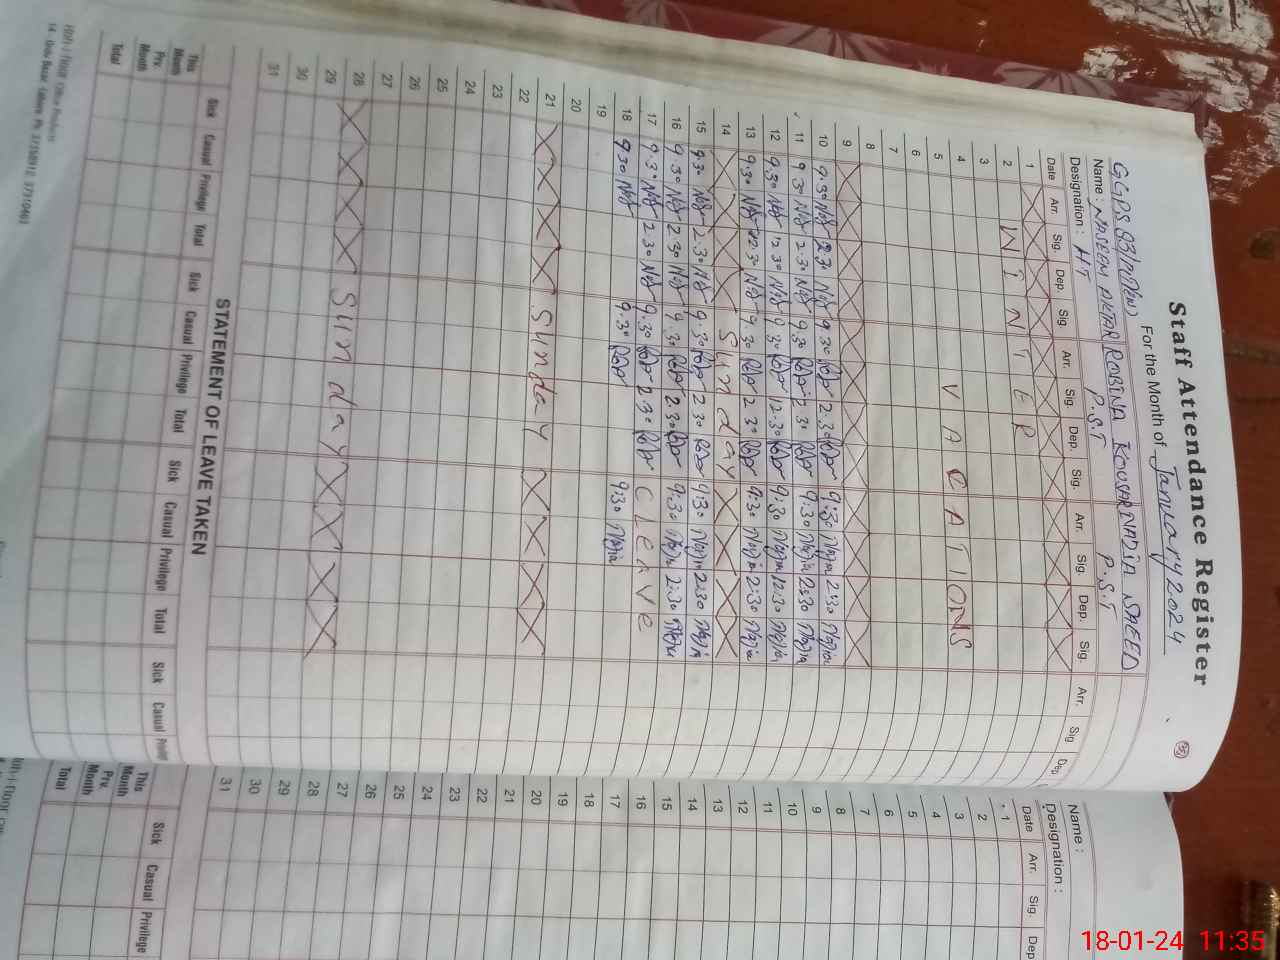 Staff Attendance Register
For the Month of January 2024
GGPS 83/
Name : NASEEM AKTAR ROBINA KOUSAR NADIA SAEED
Designation : HT P.S.T P.S.T
Date Arr. Sig. Dep. Sig. Arr. Sig. Dep. Sig. Arr. Sig. Dep. Sig. Arr. Sig Dep.
1
2 WINTER
3
4 VACATIONS
5
6
7
8
9
10 9.30 12.30 9.30 2.30 9:30 Nazia 2:30 Nazia
11 9.30 2.30 9.30 2.30 9:30 Nazia 2:30 Nazia
12 9.30 12.30 9.30 12.30 9:30 Nazia 12:30 Nazia
13 9.30 9.30 2.30 9:30 Nazia 2:30 Nazia
14 Sunday
15 9.30 2.30 9.30 2.30 9:30 Nazia 2:30 Nazia
16 9.30 2.30 9.30 2.30 9:30 Nazia 2:30 Nazia
17 9.30 2.30 9.30 2.30 C Leave
18 9.30 9.30 9:30 Nazia
19
20
21 Sunday
22
23
24
25
26
27
28 Sunday
29
30
31
STATEMENT OF LEAVE TAKEN
Sick Casual Privilege Total Sick Casual Privilege Total Sick Casual Privilege Total Sick Casual
This Month
Prv. Month
Total
Office Products
14 - Urdu Bazar, Lahore. Ph: 37358912, 37310461
Name :
Designation :
Date Arr. Sig. Dep
1
2
3
4
5
6
7
8
9
10
11
12
13
14
15
16
17
18
19
20
21
22
23
24
25
26
27
28
29
30
31
Sick Casual Privilege
This Month
Prv. Month
Total
18-01-24 11:35